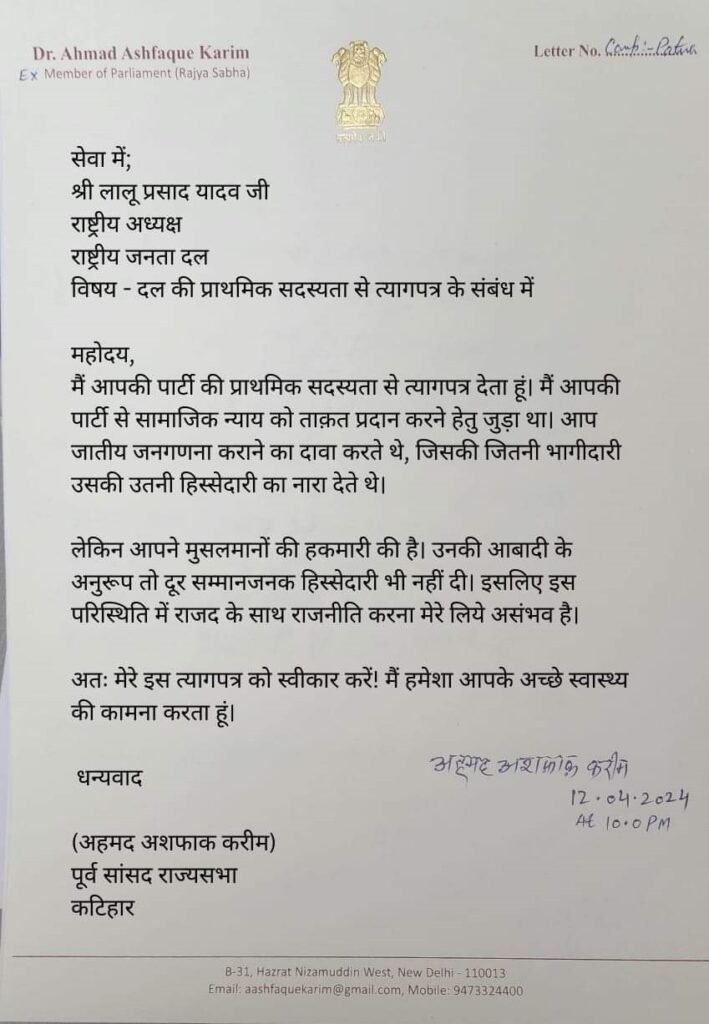 Dr. Ahmad Ashfaque Karim
Ex Member of Parliament (Rajya Sabha)
Letter No. Camp:-Patna
सेवा में;
श्री लालू प्रसाद यादव जी
राष्ट्रीय अध्यक्ष
राष्ट्रीय जनता दल
विषय - दल की प्राथमिक सदस्यता से त्यागपत्र के संबंध में
महोदय,
मैं आपकी पार्टी की प्राथमिक सदस्यता से त्यागपत्र देता हूं। मैं आपकी
पार्टी से सामाजिक न्याय को ताक़त प्रदान करने हेतु जुड़ा था। आप
जातीय जनगणना कराने का दावा करते थे, जिसकी जितनी भागीदारी
उसकी उतनी हिस्सेदारी का नारा देते थे।
लेकिन आपने मुसलमानों की हकमारी की है। उनकी आबादी के
अनुरूप तो दूर सम्मानजनक हिस्सेदारी भी नहीं दी। इसलिए इस
परिस्थिति में राजद के साथ राजनीति करना मेरे लिये असंभव है।
अतः मेरे इस त्यागपत्र को स्वीकार करें! मैं हमेशा आपके अच्छे स्वास्थ्य
की कामना करता हूं।
धन्यवाद
अहमद अशफ़ाक़ करीम
12.04.2024
At 10.0 PM
(अहमद अशफाक करीम)
पूर्व सांसद राज्यसभा
कटिहार
B-31, Hazrat Nizamuddin West, New Delhi - 110013
Email: aashfaquekarim@gmail.com, Mobile: 9473324400